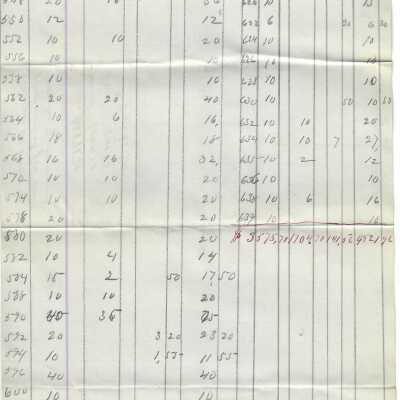 20 10
550 12 12 622 6 20 6 20
552 10 10 20 624 10 10
556 10 10 626 10
558 10 10 628 10 10
562 20 20 40 630 10 50 10 50
564 10 6 16 632 10 10 20
566 18 18 634 10 10 7 27
568 16 16 32 635 10 2 12
570 10 10 20 636 10 10
574 10 10 20 638 10 6 16
578 20 20 639 10
580 20 20
582 10 4 14
584 15 2 50 17 50
588 10 10 20
590 40 35 75
592 20 3 20 23 20
594 10 1 55 11 55
596 40 40
600 10 10